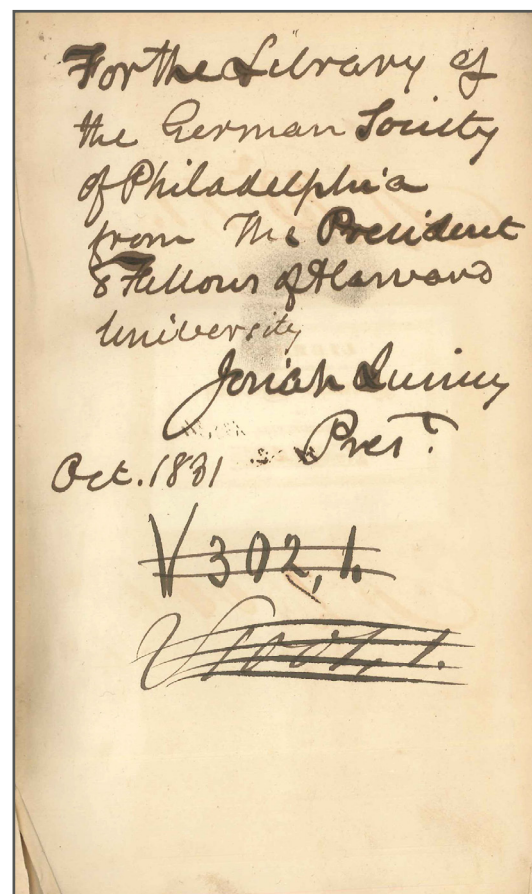 For the Library of
the German Society
of Philadelphia
from The President
& Fellows of Harvard
University
Josiah Quincy
Pres.t
Oct. 1831
V 302, 1.